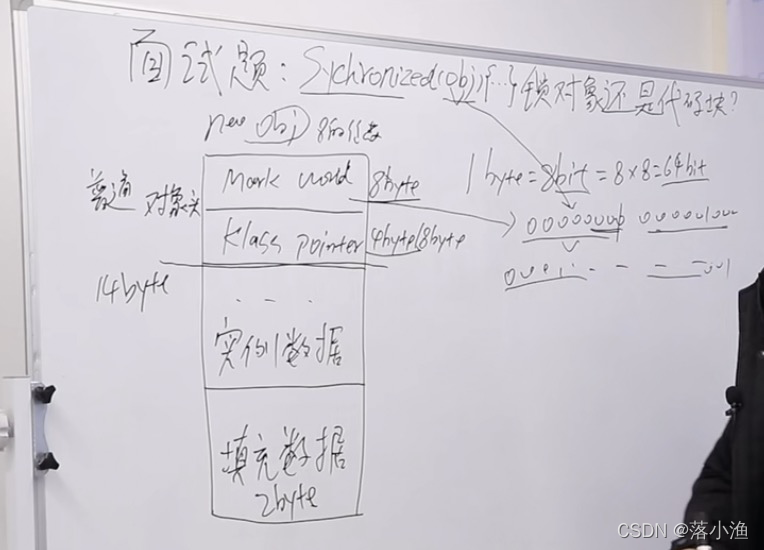 面试题：Sychronized(obj){…}锁对象还是代码块？
new obj 8的倍数
Mark world 8byte
1byte=8bit=8×8=64bit
普通 对象头
Klass pointer 4byte/8byte
14byte
...
实例数据
填充数据
2byte
CSDN @落小渔